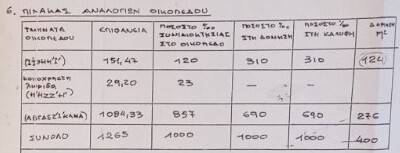 6. ΠΙΝΑΚΑΣ ΑΝΑΛΟΓΙΩΝ ΟΙΚΟΠΕΔΟΥ
ΤΜΗΜΑΤΑ ΟΙΚΟΠΕΔΟΥ ΕΠΙΦΑΝΕΙΑ ΠΟΣΟΣΤΟ ‰ ΣΥΝΙΔΙΟΚΤΗΣΙΑΣ ΣΤΟ ΟΙΚΟΠΕΔΟ ΠΟΣΟΣΤΟ ‰ ΣΤΗ ΔΟΜΗΣΗ ΠΟΣΟΣΤΟ ‰ ΣΤΗ ΚΑΛΥΨΗ ΔΟΜΗΣΗ μ2
151,47 120 310 310 124
ΚΟΙΝΟΧΡΗΣΤΗ 29,20 23 — —
1084,33 857 690 690 276
ΣΥΝΟΛΟ 1265 1000 1000 1000 400